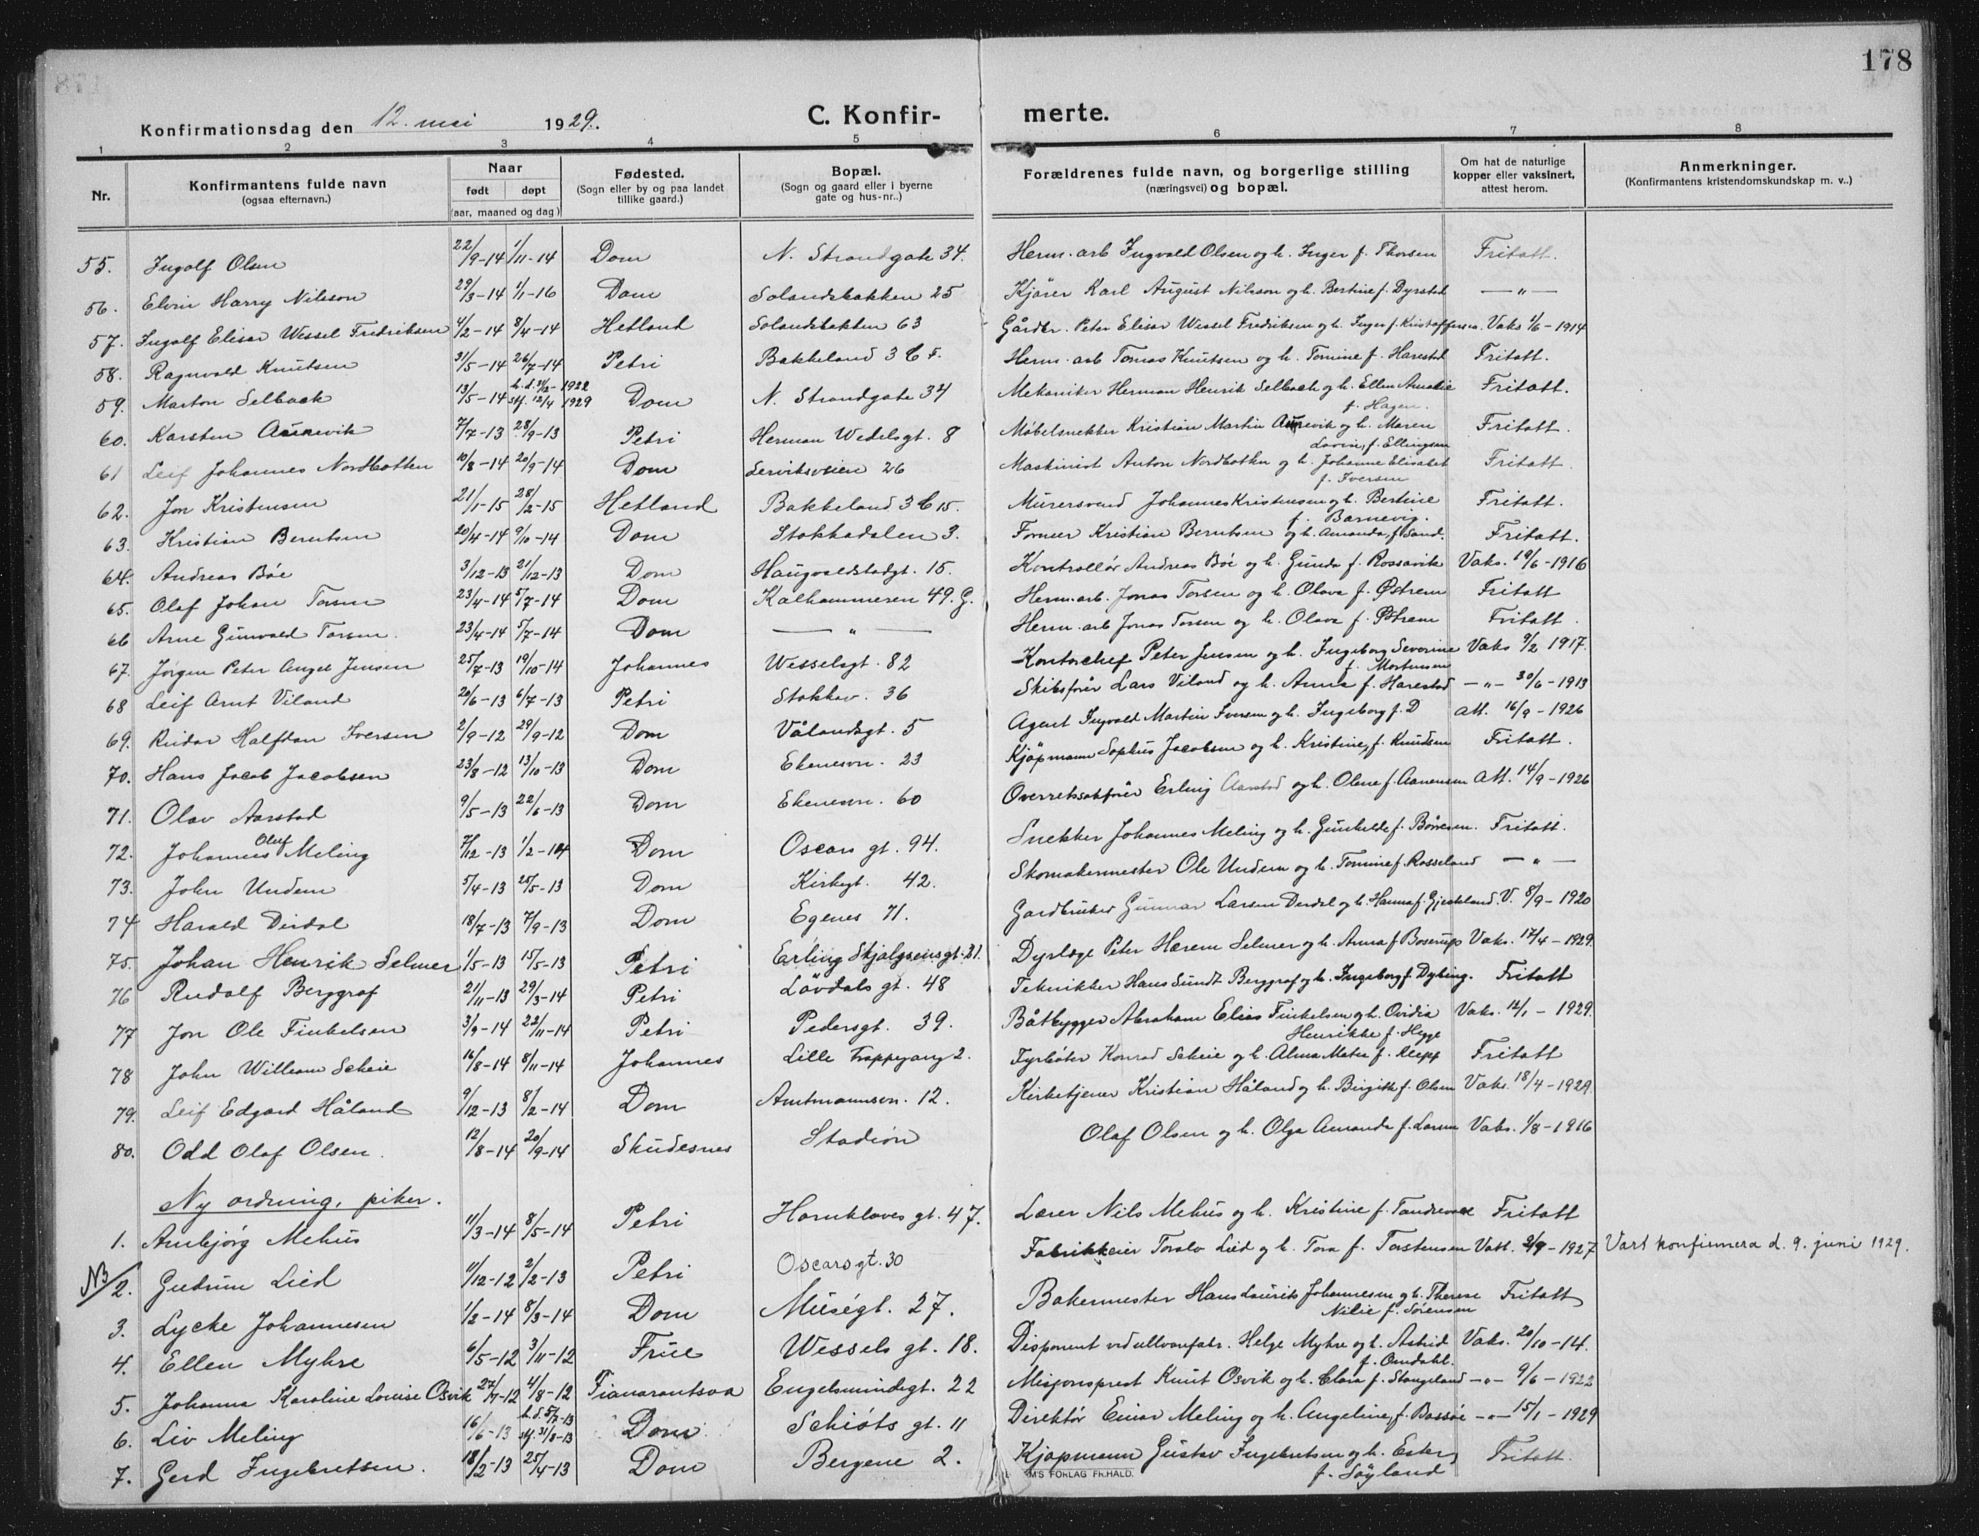 178
Konfirmationsdag den 12. mai 1929.
C. Konfirmerte.
1 2 3 4 5 6 7 8
Nr.
Konfirmantens fulde navn
(ogsaa efternavn.)
Naar
født døpt
(aar, maaned og dag)
Fødested.
(Sogn eller by og paa landet
tillike gaard.)
Bopæl.
(Sogn og gaard eller i byerne
gate og hus-nr..)
Forældrenes fulde navn, og borgerlige stilling
(næringsvei) og bopæl.
Om hat de naturlige
kopper eller vaksinert,
attest herom.
Anmerkninger.
(Konfirmantens kristendomskundskap m. v..)
55. Ingolf Olsen 22/9-14 1/11-14 Dom N. Strandgate 34. Herm. arb Ingvald Olsen og h. Inger f. Thorsen Fritatt.
56. Elvin Harry Nilsson 29/3-14 1/1-16 Dom Solandsbakken 25 Kjører Karl August Nilsson og h. Bertine f. Dyrstad — " —
57. Ingolf Elisar Wessel Fredriksen 4/2-14 8/4-14 Hetland Solandsbakken 63 Gårdbr. Peter Elisar Wessel Fredriksen og h. Inger f. Kristoffersen. Vaks 1/6-1914
58. Ragnvald Knutsen 31/5-14 26/7-14 Petri Bakkeland 3 Herm. arb Tomas Knutsen og h. Tomine f. Harestad Fritatt.
59. Marton Selback 13/5-14 h.d. 1922 stf. 12/4 1929 Dom N. Strandgate 34 Mekaniker Herman Henrik Selback og h. Ellen Amalie f. Hagen. Fritatt.
60. Karsten Aurevik 7/7-13 28/9-13 Petri Herman Wedelsgt. 8 Møbelsnekker Kristian Martin Aurevik og h. Maren Lovine f. Ellingsen Fritatt.
61 Leif Johannes Nordbotten 10/8-14 20/9-14 Dom 26 Maskinist Anton Nordbotten og h. Johanne Elisabet f. Iversen Fritatt.
62. Jon Kristensen 21/1-15 28/2-15 Hetland Bakkeland 3 15. Murersvend Johannes Kristensen og h. Bertine f. Barnevig. Fritatt.
63. Kristian Berntsen 20/4-14 9/10-14 Dom Stokkadalen 3. Former Kristian Berntsen og h. Amanda f. Sand. Fritatt.
64. Andreas Bøe 3/12-13 21/12-13 Dom Haugvaldstadgt. 15. Kontrollør Andreas Bøe og h. Gunda f. Rossavik Vaks. 19/6-1916
65. Olaf Johan Torsen 23/4-14 5/7-14 Dom Kalhammeren 49. G. Herm. arb. Jonas Torsen og h. Olava f. Østrem Fritatt
66 Arne Gunvald Torsen. 23/4-14 5/7-14 Dom — " — Herm. arb Jonas Torsen og h. Olava f. Østrem Fritatt.
67. Jørgen Peter Angel Jensen 25/7-13 19/10-14 Johannes Wesselsgt. 82 Kontorchef Peter Jensen og h. Ingeborg Severine f. Mortensen Vaks 9/2 1917.
68 Leif Arnt Viland 20/6-13 6/7-13 Petri Stokkav. 36 Skibsfører Lars Viland og h. Anna f. Harestad — " — 30/6-1913
69. Reidar Halfdan Iversen 2/9-12 29/9-12 Dom Vålandsgt. 5 Agent Ingvald Martin Iversen og h. Ingeborg f. D att. 16/9-1926
70. Hans Jacob Jacobsen 23/8-12 13/10-13 Dom Ekenesvn. 23 Kjøpmann Sophus Jacobsen og h. Kristine, f. Knudsen Fritatt.
71. Olav Aarstad 9/5-13 22/6-13 Dom Ekenesvn. 60 Overretssakfører Erling Aarstad og h. Olene f. Aanensen att. 14/9-1926
72. Johannes Oluf Meling 7/12-13 1/2-14 Dom Oscars gt. 94. Snekker Johannes Meling og h. Gunhilde f. Børresen. Fritatt.
73. John Undem 5/4-13 25/5-13 Dom Kirkegt. 42. Skomakermester Ole Undem og h. Tomine f. Rosseland — " —
74 Harald Dirdal 18/7-13 7/9-13 Dom Egenes 71. Gardbruker Gunnar Larsen Dirdal og h. Hanna f. Gjeskland. V. 8/9-1920
75. Johan Henrik Selmer 1/5-13 15/5-13 Petri Erling Skjalgsensgt. 31. Dyrlæge Peter Hærem Selmer og h. Anna f. Boserup Vaks. 17/4-1929.
76 Rudolf Berggraf 21/11-13 29/3-14 Petri Løvdals gt. 48 Tekniker Hans Sundt Berggraf og h. Ingeborg f. Dybing. Fritatt
77 Jon Ole Finkelsen 3/9-14 22/11-14 Petri Pedersgt. 39. Båtbygger Abraham Elias Finkelsen og h. Ovidia Henrikke f. Hegge Vaks. 12/1-1929.
78 John William Scheie 16/8-14 8/11-14 Johannes Lille Trappegang 2. Fyrbøter Konrad Scheie og h. Alma Matee f. Klepp Fritatt
79. Leif Edgard Håland 9/12-13 8/2-14 Dom Amtmannsvn. 12. Kirketjener Kristian Håland og h. Birgith f. Olsen Vaks. 18/4-1929.
80. Odd Olaf Olsen. 12/8-14 20/9-14 Skudesnes Stadion Olaf Olsen og h. Olga Amanda f. Larsen Vaks. 1/8-1916
Ny ordning, piker.
1. Ambjørg Mehus 11/3-14 8/5-14 Petri Hornkloves gt. 47. Lærer Nils Mehus og h. Kristine f. Tandrevold Fritatt
NB 2. Gudrun Lied 11/12-12 2/2-13 Petri Oscarsgt. 30 Fabrikkeier Toralv Lied og h. Tora f. Torstensen Vatt. 2/9-1927 Vart konfirmera d. 9. juni 1929.
3. Lycke Johannesen 1/2-14 8/3-14 Dom Muségt. 27. Bakermester Hans Laurits Johannesen og h. Therese Nilie f. Sørensen Fritatt
4. Ellen Myhre 6/5-12 3/11-12 Frue Wessels gt. 18. Disponent ved ullvarefabr. Helge Myhre og h. Astrid f. Omdahl. Vaks. 20/10-14.
5. Johanna Karoline Louise Osvik 27/7-12 4/8-12 Fianarantsoa Engelsmindegt. 22 Misjonsprest Knut Osvik og h. Clara f. Stangeland — " — 9/6-1922
6. Liv Meling 16/6-13 h.d. 5/7-13 stf. 31/8-13 Dom Schiøts gt. 11 Direktør Einar Meling og h. Angeline, f. Bassøe — " — 15/1-1929
7. Gerd Ingebretsen. 18/2-13 25/4-13 Dom Bergene 2. Kjøpmann Gustav Ingebretsen og h. Ester f. Søyland Fritatt.
M'S FORLAG FR.HALD.